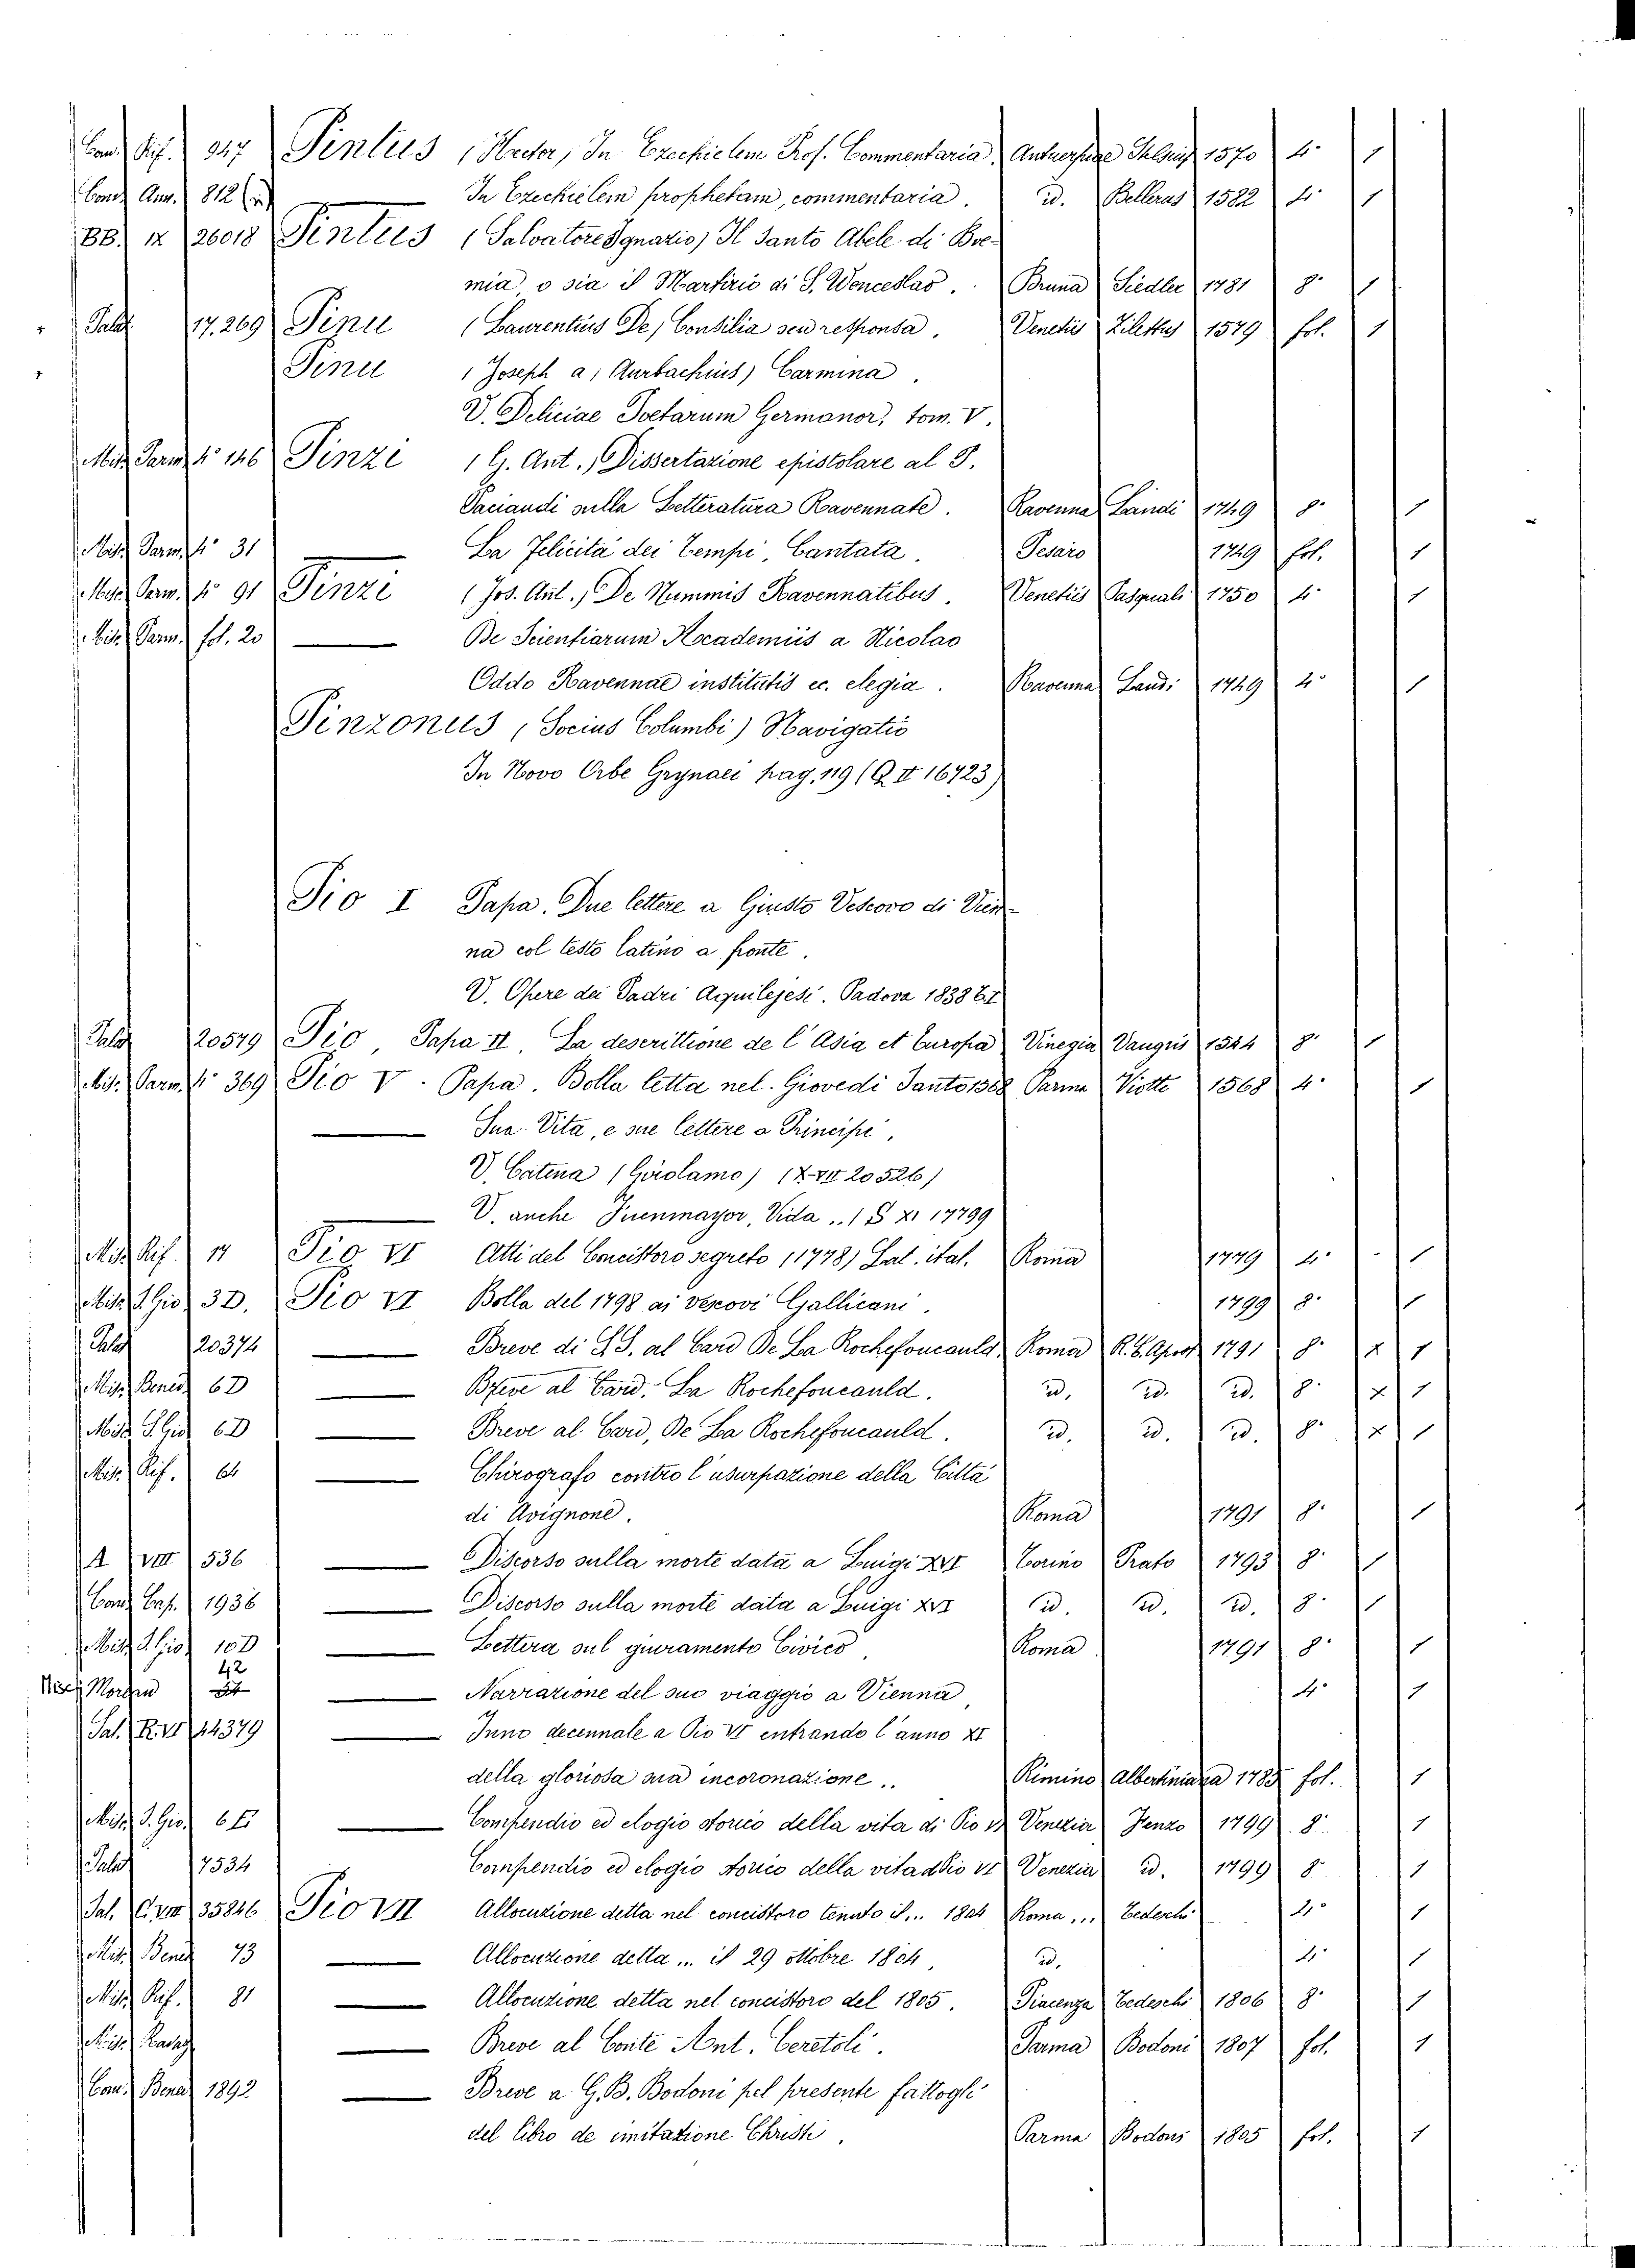 Cand Rif. 947 Pintus (Hector) In Ezechielem Prof. Commentaria. Antuerpiae 1570 4° 1
Cand Ann. 812 In Ezechielem prophetam, commentaria. id. Bellerus 1582 4° 1
BB. IX 26018 Pintus (Salvatore Ignazio) Il Santo Abele di Boe-
mia, o sia il Martirio di S. Wenceslao. Bruna Siedler 1781 8° 1
+ Palat 17.269 Pinu (Laurentius De) Consilia seu responsa. Venetiis Zilettus 1579 fol. 1
+ Pinu (Joseph a, Aurbachius) Carmina.
V. Deliciae Poetarum Germanor. tom. V.
Misc. Parm. 4° 146 Pinzi (G. Ant.) Dissertazione epistolare al P.
Paciaudi sulla Letteratura Ravennate. Ravenna Landi 1749 8° 1
Misc. Parm. 4° 31 La Felicità dei Tempi, Cantata. Pesaro 1749 fol. 1
Misc. Parm. 4° 91 Pinzi (Jos. Ant.) De Nummis Ravennatibus. Venetiis Pasquali 1750 4° 1
Misc. Parm. fol. 20 — De Scientiarum Accademiis a Nicolao
Oddo Ravennae institutis ec. elegia. Ravenna Landi 1749 4° 1
Pinzonus (Socius Columbi) Navigatio
In Novo Orbe Grynaei pag. 119 (Q II 16723)
Pio I Papa. Due lettere a Giusto Vescovo di Vien-
na col testo latino a fronte.
V. Opere dei Padri Aquilejesi. Padova 1838 t.I
Palat 20579 Pio, Papa II. La descrittione de l'Asia et Europa Vinegia Vaugris 1544 8° 1
Misc. Parm. 4° 369 Pio V. Papa. Bolla letta nel. Giovedi Santo 1568 Parma Viotto 1568 4° 1
— Sua Vita, e sue lettere a Principi,
V. Catena (Girolamo) (X. VII 20526)
V. anche Fuenmayor, Vida .. (S XI 17799
Misc. Rif. 17 Pio VI Atti del Concistoro segreto (1778) Lat. ital. Roma 1779 4° 1
Misc. S. Gio 3D. Pio VI Bolla del 1798 ai vescovi Gallicani. 1799 8° 1
Palat 20374 — Breve di S.S. al Card De La Rochefoucauld, Roma R. C. Apost 1791 8° x 1
Misc. Bened. 6D — Breve al Card. La Rochefoucauld. id. id. id. 8° x 1
Misc S. Gio 6D — Breve al Card, De La Rochefoucauld. id. id. id. 8° x 1
Misc. Rif. 64 — Chirografo contro l'usurpazione della Città
di Avignone. Roma 1791 8° 1
A VIII 536 — Discorso sulla morte data a Luigi XVI Torino Prato 1793 8° 1
Cand Cap. 1936 — Discorso sulla morte data a Luigi XVI id. id. id. 8° 1
Misc S. Gio 10D — Lettera sul giuramento Civico Roma 1791 8° 1
Misc. 42 — Narrazione del suo viaggio a Vienna 4° 1
Sal. R. VI 14379 — Inno decennale a Pio VI entrando l'anno XI
della gloriosa sua incoronazione.. Rimino Albertiniana 1785 fol. 1
Misc. S. Gio. — Compendio ed elogio storico della vita di Pio VI Venezia Fenzo 1799 8° 1
Palat 7534 Compendio ed elogio storico della vita di Pio VI Venezia id. 1799 8° 1
Sal. 35846 Pio VII Allocuzione detta nel concistoro tenuto il... 1804 Roma... Tedeschi 4° 1
Misc. Bened 73 — Allocuzione detta ... il 29 ottobre 1804, id. 4° 1
Misc. Rif. 81 — Allocuzione detta nel concistoro del 1805. Piacenza Tedeschi 1806 8° 1
Misc. — Breve al Conte Ant. Ceretoli. Parma Bodoni 1807 fol. 1
Cand. Bened 1892 — Breve a G. B. Bodoni pel presente fattogli
del libro de imitatione Christi. Parma Bodoni 1805 fol. 1